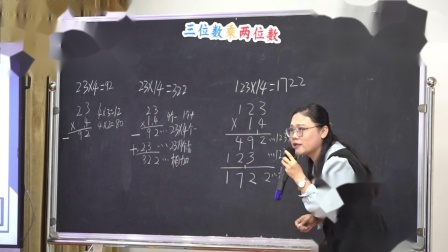 三位数乘两位数
23×4=92
23
× 4
92
4×3=12
4×2=80
23×14=322
23
×14
92
+23
322
123×14=1722
123
×14
492
123
1722